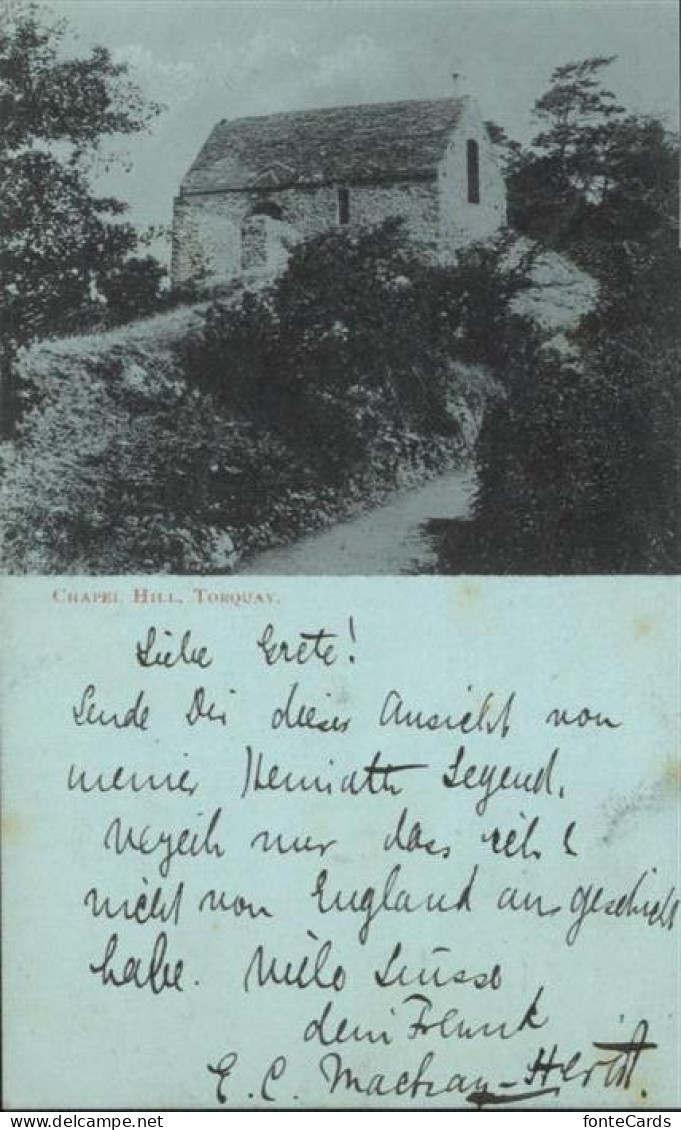 CHAPEL HILL. TORQUAY.
Liebe Grete!
Sende Dir dieses Ansicht von
meiner Heimath Gegend.
Verzeih nur dass ich's
nicht von England aus geschickt
habe. Viele Grüsse
dein Freund
E. C. Mackay-
fonteCards